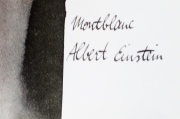 Montblanc
Albert Einstein